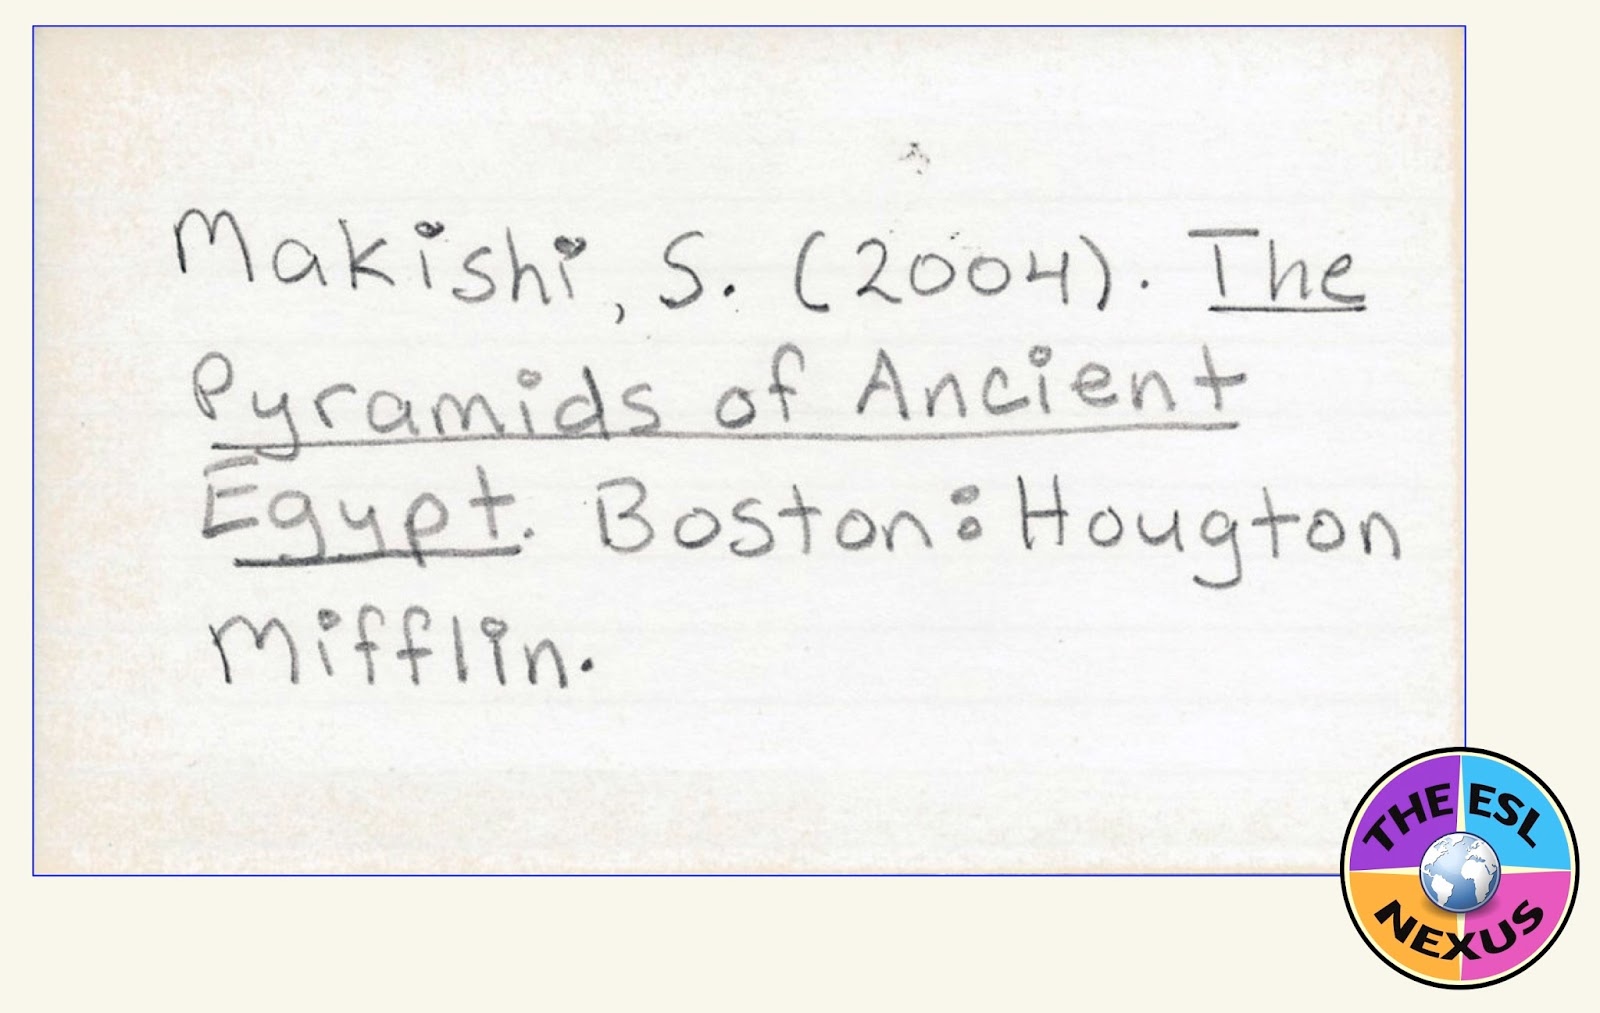 Makishi, S. (2004). The
Pyramids of Ancient
Egypt. Boston: Hougton
Mifflin.
THE ESL
NEXUS